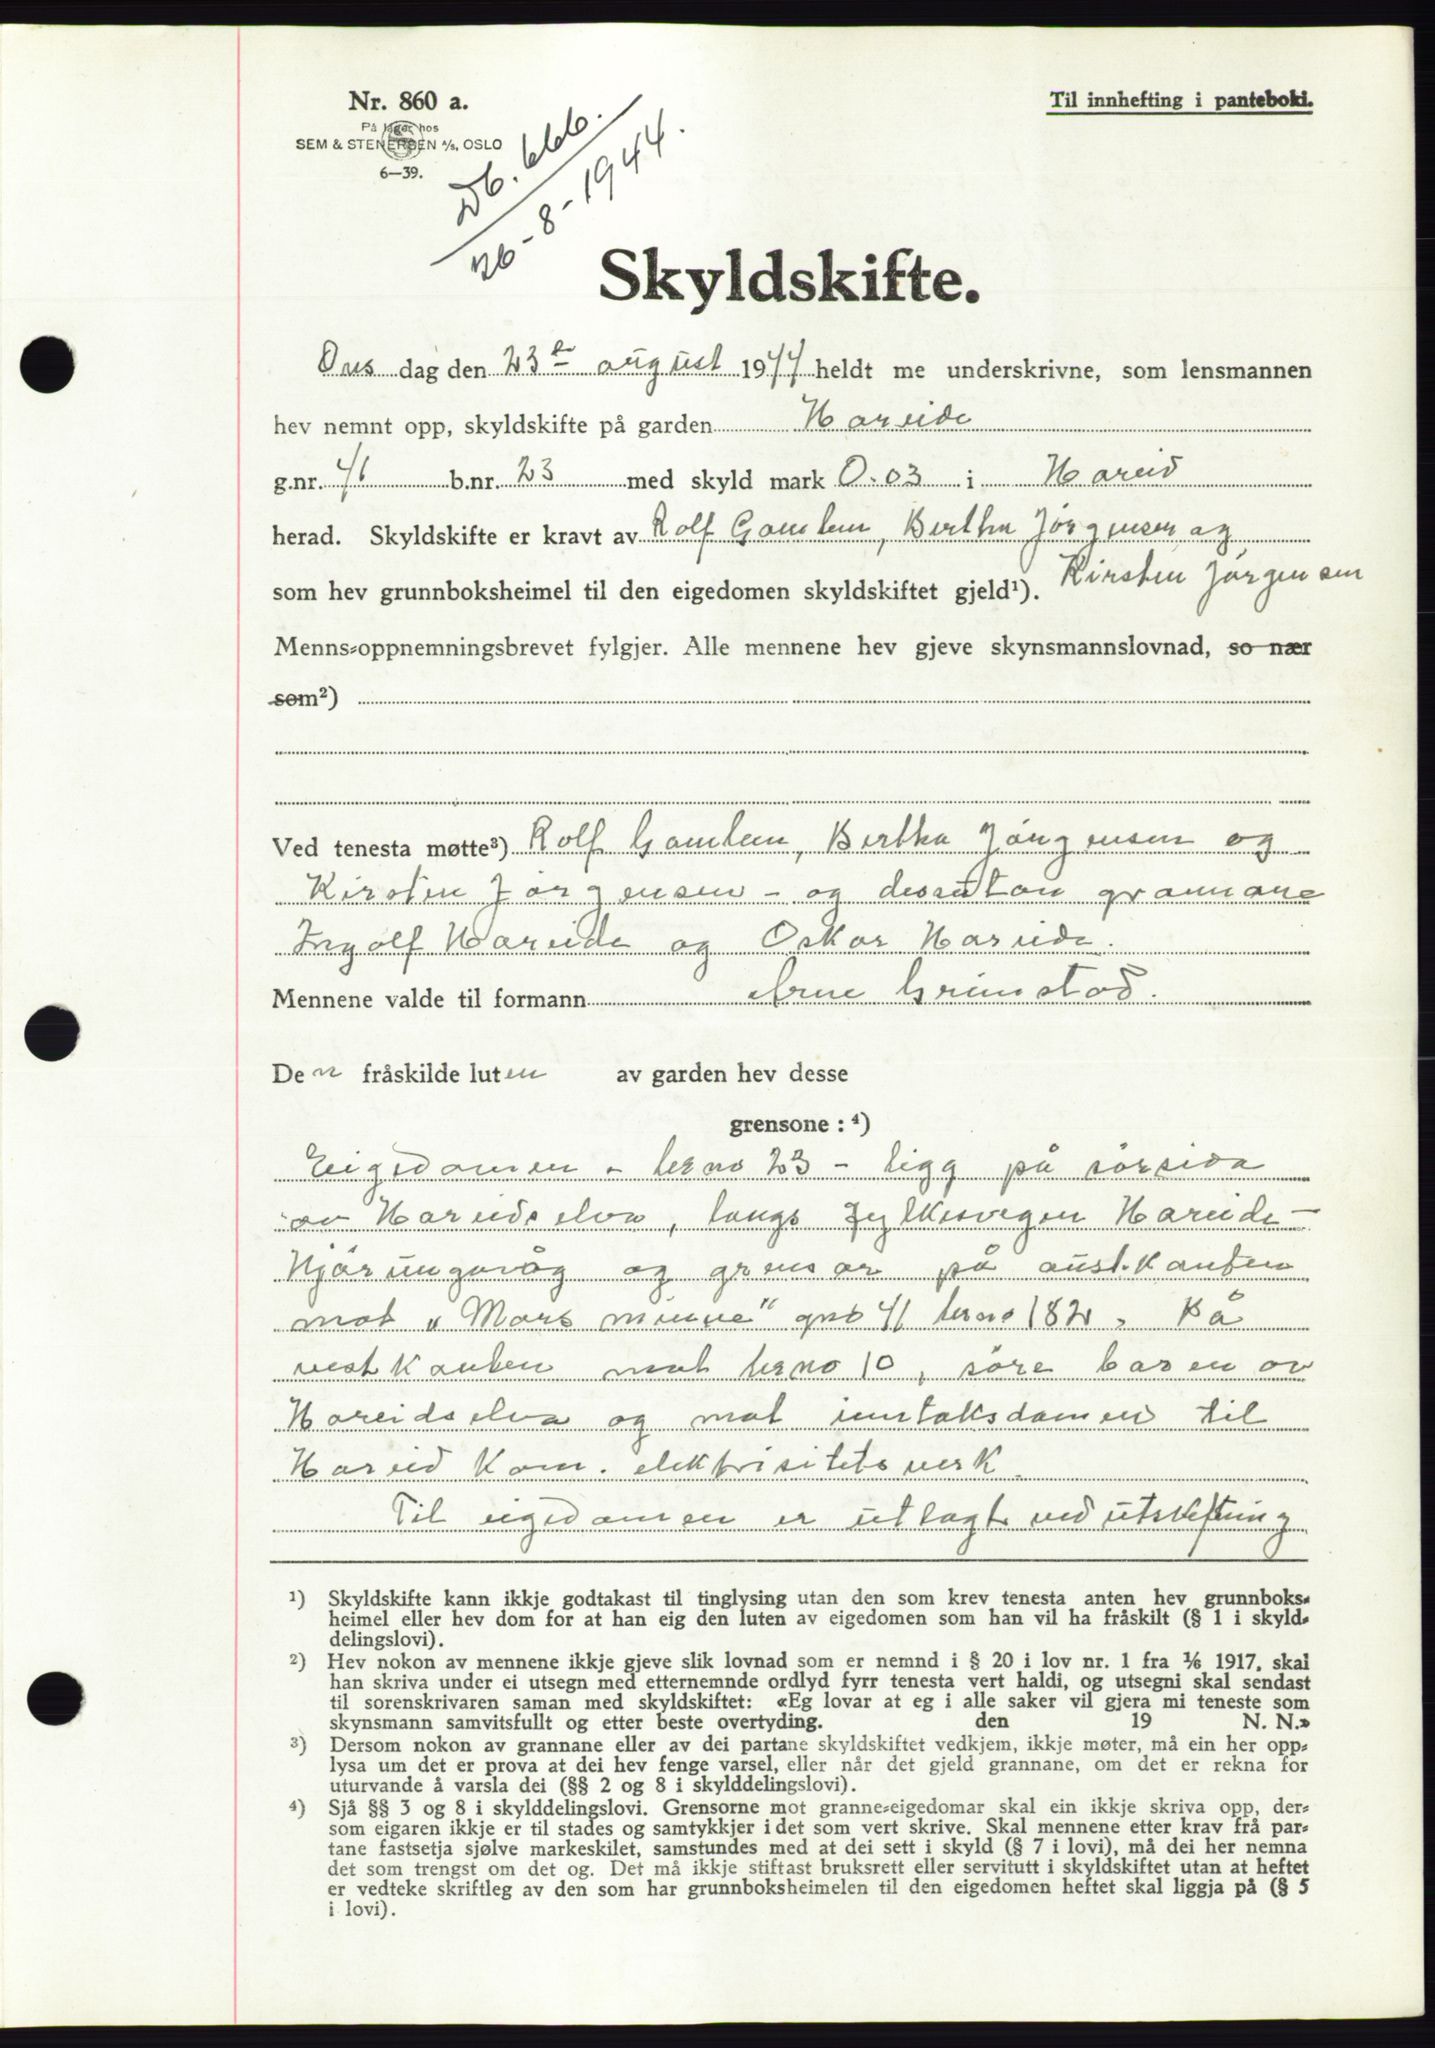 Nr. 860 a.
På lager hos
SEM & STENERSEN A/S, OSLO
6—39.
Til innhefting i panteboki.
Db. 666.
26-8-1944.
Skyldskifte.
Ons dag den 23de august 1944 heldt me underskrivne, som lensmannen
hev nemnt opp, skyldskifte på garden Hareide
g.nr. 41 b.nr. 23 med skyld mark 0.03 i Hareid
herad. Skyldskifte er kravt av Rolf Gamlem, Bertha Jørgensen og
som hev grunnboksheimel til den eigedomen skyldskiftet gjeld¹). Kirsten Jørgensen
Menns-oppnemningsbrevet fylgjer. Alle mennene hev gjeve skynsmannslovnad, so nær
som²)
Ved tenesta møtte³) Rolf Gamlem, Bertha Jørgensen og
Kirsten Jørgensen - og dessutan grannane
Ingolf Hareide og Oskar Hareide.
Mennene valde til formann Arne Grimstad.
Den fråskilde luten av garden hev desse
grensone : ⁴)
Eigedomen - brno 23 - ligg på sørsida
av Hareidselva, langs fylkesvegen Hareide-
Hjørungavåg og grensar på austkanten
mot „Mors minne" gno 41 brno 182. På
vestkanten mot brno 10, søre baren av
Hareidselva og mot inntaksdamen til
Hareid Kom. elektrisitetsverk.
Til eigedomen er utlagt ved utskifting
¹) Skyldskifte kann ikkje godtakast til tinglysing utan den som krev tenesta anten hev grunnboks-
heimel eller hev dom for at han eig den luten av eigedomen som han vil ha fråskilt (§ 1 i skyld-
delingslovi).
²) Hev nokon av mennene ikkje gjeve slik lovnad som er nemnd i § 20 i lov nr. 1 fra 1/6 1917, skal
han skriva under ei utsegn med etternemnde ordlyd fyrr tenesta vert haldi, og utsegni skal sendast
til sorenskrivaren saman med skyldskiftet: «Eg lovar at eg i alle saker vil gjera mi teneste som
skynsmann samvitsfullt og etter beste overtyding. den 19 N. N.»
³) Dersom nokon av grannane eller av dei partane skyldskiftet vedkjem, ikkje møter, må ein her opp-
lysa um det er prova at dei hev fenge varsel, eller når det gjeld grannane, om det er rekna for
uturvande å varsla dei (§§ 2 og 8 i skylddelingslovi).
⁴) Sjå §§ 3 og 8 i skylddelingslovi. Grensorne mot granne-eigedomar skal ein ikkje skriva opp, der-
som eigaren ikkje er til stades og samtykkjer i det som vert skrive. Skal mennene etter krav frå par-
tane fastsetja sjølve markeskilet, samstundes med at dei sett i skyld (§ 7 i lovi), må dei her nemna
det som trengst om det og. Det må ikkje stiftast bruksrett eller servitutt i skyldskiftet utan at heftet
er vedteke skriftleg av den som har grunnboksheimelen til den eigedomen heftet skal liggja på (§ 5
i lovi).